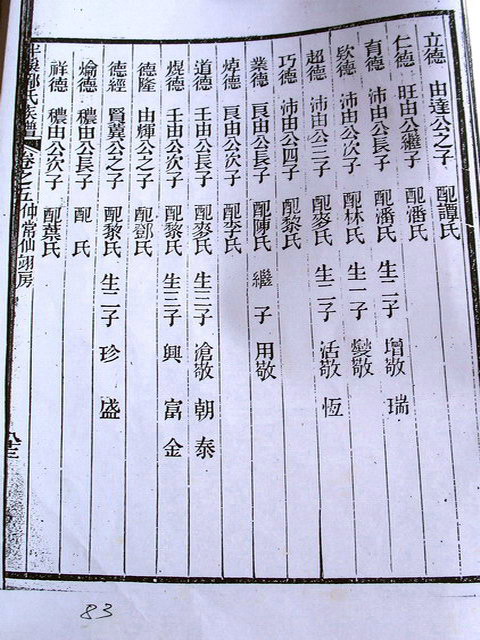 立德 由達公之子 配譚氏
仁德 旺由公繼子 配潘氏
育德 沛由公長子 配潘氏 生二子 增敬 瑞
欽德 沛由公次子 配林氏 生一子 燮敬
超德 沛由公三子 配麥氏 生二子 活敬 恆
巧德 沛由公四子 配黎氏
業德 良由公長子 配陳氏 繼 子 用敬
焯德 良由公次子 配李氏
道德 壬由公長子 配麥氏 生三子 滄敬 朝 泰
焜德 壬由公次子 配黎氏 生三子 興 富 金
德隆 由輝公之子 配鄧氏
德經 賢冀公之子 配黎氏 生二子 珍 盛
煥德 穠由公長子 配 氏
祥德 穠由公次子 配葉氏
氏族譜 卷之五仙常仙翊房
83